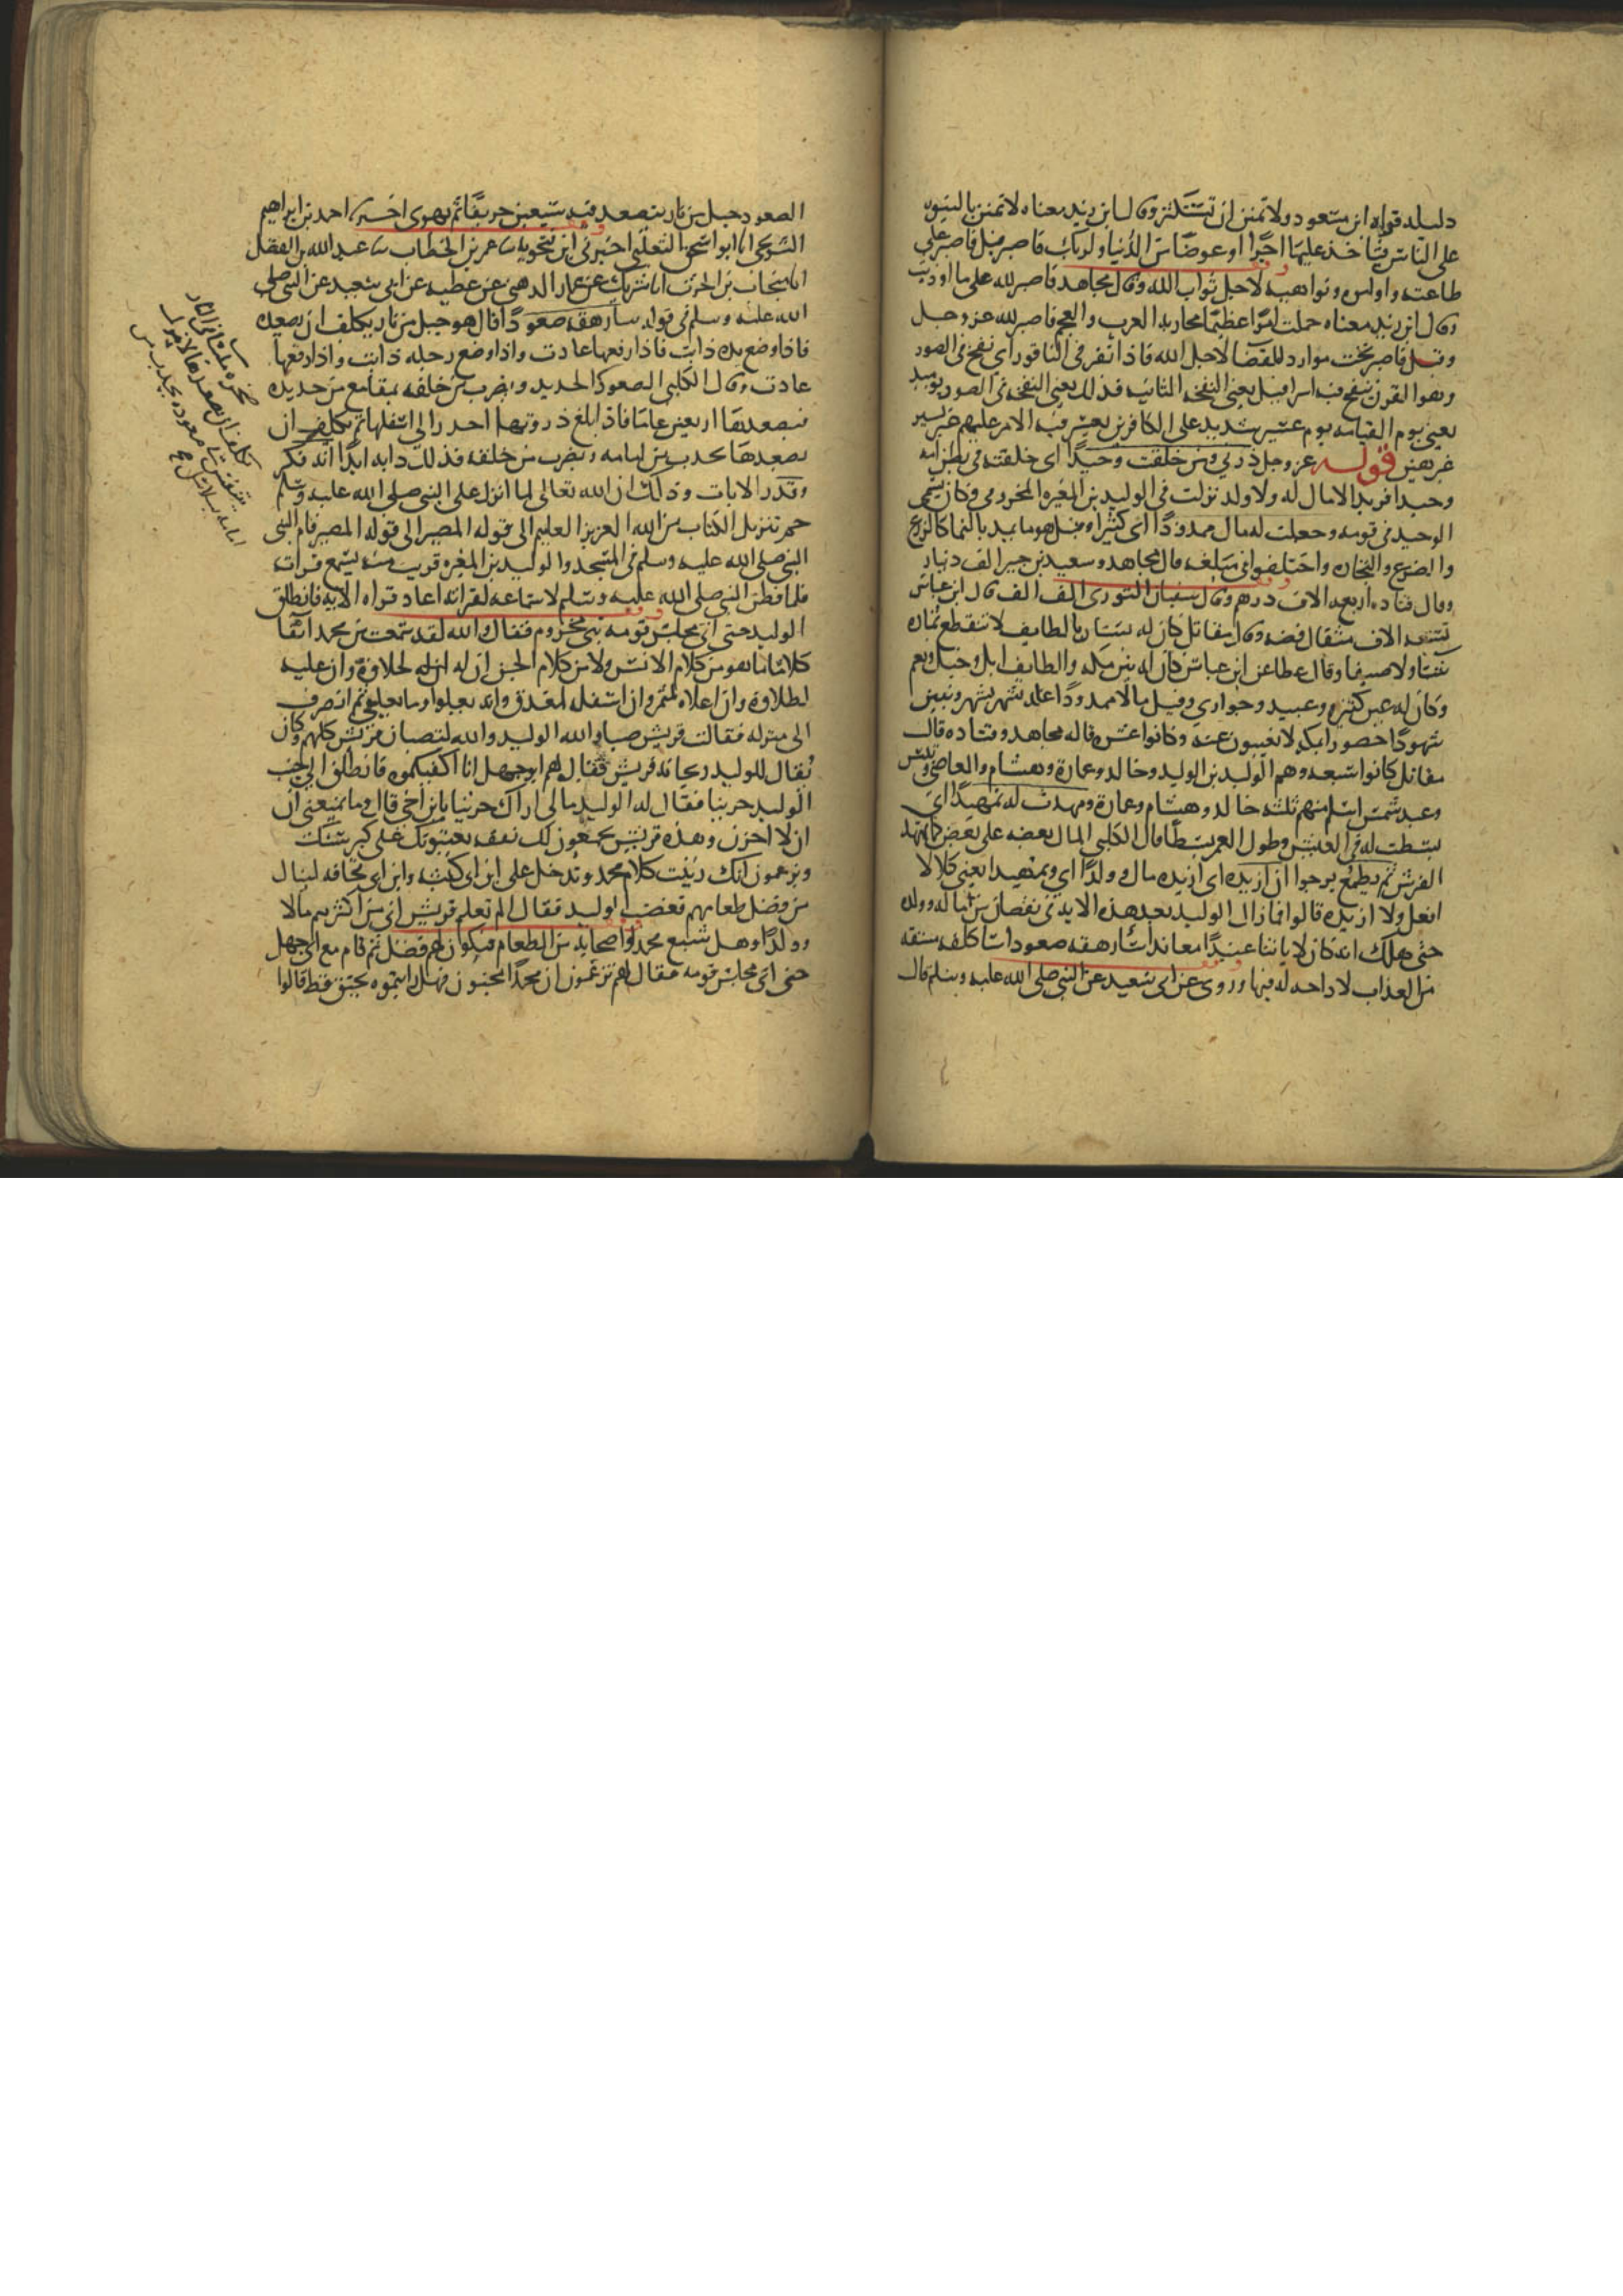 دليله قراه ابن مسعود ولا تمنن ان تستكثر وقال ابن زيد معناه لا تمنن بالنبوه
على الناس فتاخذ عليها اجرا او عوضا من الدنيا ولربك فاصبر قيل فاصبر على
طاعته واوامره ونواهيه لاجل ثواب الله وقال مجاهد فاصبر لله على ما اوذيت
وقال ابن زيد معناه حملت امرا عظيما محاربه العرب والعجم فاصبر لله عز وجل
وقيل فاصبر تحت موارد القضا لاجل الله فاذا نقر في الناقور اي نفخ في الصور
وهو القرن ينفخ فيه اسرافيل يعني النفخه الثانيه فذلك يعني النفخه في الصور يوميذ
يعني يوم القيامه يوم عسير شديد على الكافرين يعسر فيه الامر عليهم غير يسير
غير هين قوله عز وجل ذرني ومن خلقت وحيدا اي خلقته في بطن امه
وحيدا فريدا لا مال له ولا ولد نزلت في الوليد بن المغيره المخزومي وكان يسمى
الوحيد في قومه وجعلت له مالا ممدودا اي كثيرا وقيل هو ما يمد بالنما كالزرع
والضرع والتجاره واختلفوا في مبلغه قال مجاهد وسعيد بن جبير الف دينار
وقال قتاده اربعه الاف درهم وقال سفيان الثوري الف الف قال ابن عباس
تسعه الاف مثقال فضه وقال مقاتل كان له بستان بالطايف لا تنقطع ثماره
شتا ولا صيفا وقال عطا عن ابن عباس كان له بين مكه والطايف ابل وخيل ونعم
وكان له عين كثيره وعبيد وجواري وقيل مالا ممدودا غله شهر بشهر وبنين
شهودا حضورا بمكه لا يغيبون عنه وكانوا عشره قاله مجاهد وقتاده قال
مقاتل كانوا سبعه وهم الوليد بن الوليد وخالد وعمارة وهشام والعاص وقيس
وعبد شمس اسلم منهم ثلثه خالد وهشام وعمارة ومهدت له تمهيدا اي
بسطت له في العيش وطول العمر بسطا قال الكلبي المال بعضه على بعض كما يمهد
الفرش ثم يطمع يرجوا ان ازيده اي ازيده مالا وولدا اي وتمهيدا يعني كلا لا
افعل ولا ازيده قالوا فما زال الوليد بعد هذه الايه في نقصان من ماله وولده
حتى هلك انه كان لاياتنا عنيدا معاندا سارهقه صعودا ساكلفه مشقه
من العذاب لا راحه له فيها وروي عن ابي سعيد عن النبي صلى الله عليه وسلم قال
الصعود جبل من نار يتصعد فيه سبعين خريفا ثم يهوي اخبرنا احمد بن ابراهيم
الشريحي انا ابو اسحق الثعلبي اخبرني ابن فنجويه ثنا عمر بن الخطاب ثنا عبد الله بن الفضل
انا منجاب بن الحرث انا شريك عن عمار الدهني عن عطيه عن ابي سعيد عن النبي صلى
الله عليه وسلم في قوله سارهقه صعودا قال هو جبل من نار يكلف ان يصعده
فاذا وضع يده ذابت فاذا رفعها عادت واذا وضع رجله ذابت واذا رفعها
عادت وقال الكلبي الصعود الحديد ويضرب من خلفه بمقامع من حديد
فيصعدها اربعين عاما فاذا بلغ ذروتها احدر الى اسفلها ثم يكلف ان
يصعدها يجذب من امامه ويضرب من خلفه فذلك دابه ابدا انه فكر
وقدر الايات وذلك ان الله تعالى لما انزل على النبي صلى الله عليه وسلم
حم تنزيل الكتاب من الله العزيز العليم الى قوله المصير الى قوله المصير قام النبي
النبي صلى الله عليه وسلم في المسجد والوليد بن المغيره قريب منه يسمع قراته
فلما فطن النبي صلى الله عليه وسلم لاستماعه لقراته اعاد قراه الايه فانطلق
الوليد حتى اتى مجلس قومه بني مخزوم فقال والله لقد سمعت من محمد انفا
كلاما ما هو من كلام الانس ولا من كلام الجن ان له لحلاوة وان عليه
لطلاوة وان اعلاه لمثمر وان اسفله لمغدق وانه يعلوا وما يعلى ثم انصرف
الى منزله فقالت قريش صبا والله الوليد والله لتصبان قريش كلهم وكان
يقال للوليد ريحانه قريش فقال لهم ابو جهل انا اكفيكموه فانطلق الى جنب
الوليد حزينا فقال له الوليد ما لي اراك حزينا يا بن اخي قال وما يمنعني ان
ان لا احزن وهذه قريش يجمعون لك نفقه يعينونك على كبر سنك
ويزعمون انك زينت كلام محمد وتدخل على ابن ابي كبشه وابن ابي قحافه لينال
من فضل طعامهم فغضب الوليد فقال الم تعلم قريش اني من اكثرهم مالا
وولدا وهل شبع محمد واصحابه من الطعام فيكون لهم فضل ثم قام مع ابي جهل
حتى اتى مجلس قومه فقال لهم تزعمون ان محمدا مجنون فهل رايتموه يخنق قط قالوا
صخره ملسا في النار
يكلف ان يصعدها لا يترك
يتنفس في صعوده يجذب من
امامه بسلاسل